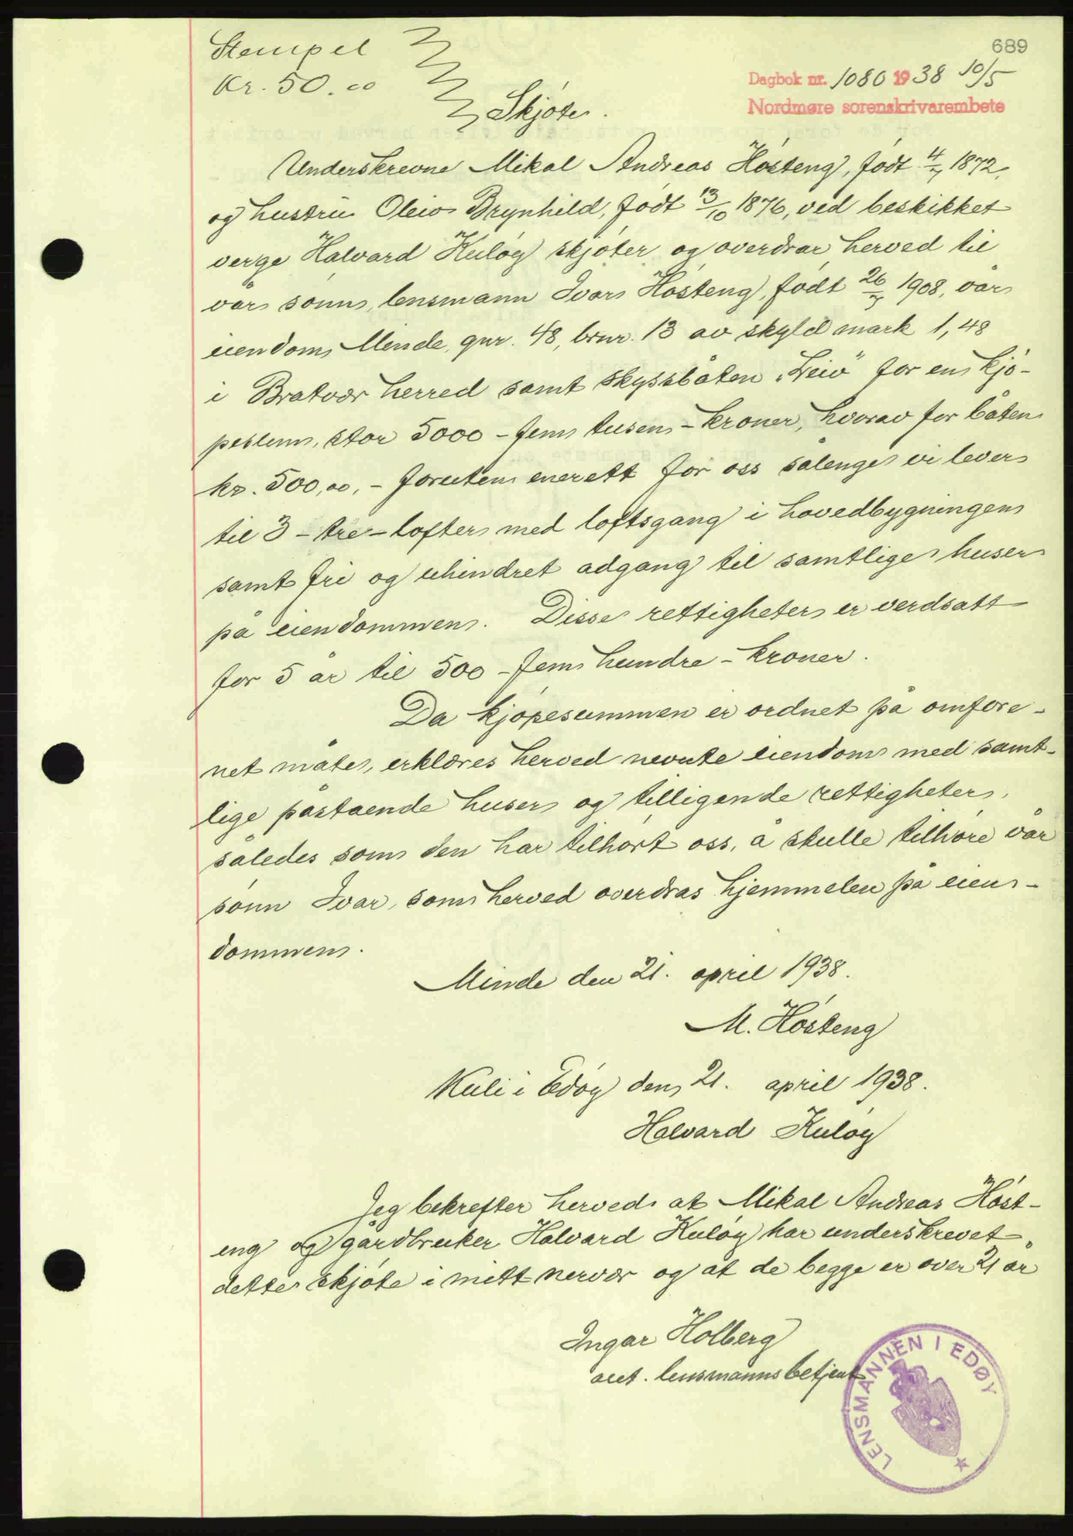 689
Stempel
Kr. 50.00
Dagbok nr. 1080 1938 10/5
Nordmøre sorenskrivarembete
Skjøte.
Underskrevne Mikal Andreas Høsteng, født 4/7 1872,
og hustru Oleva Brynhild, født 13/10 1876, ved beskikket
verge Halvard Kuløy skjøter og overdrar herved til
vår sønn, lensmann Ivar Høsteng, født 26/7 1908, vår
eiendom Minde, gnr. 48, bnr. 13 av skyld mark 1,48
i Bratvær herred samt skyssbåten "Leiv" for en kjø-
pesum, stor 5000 - fem tusen - kroner, hvorav for båten
kr. 500,00, - foruten enerett for oss sålenge vi lever
til 3 - tre - lofter med loftsgang i hovedbygningen
samt fri og uhindret adgang til samtlige huser
på eiendommen. Disse rettigheter er verdsatt
for 5 år til 500 - fem hundre - kroner.
Da kjøpesummen er ordnet på omfore-
net måte, erklæres herved nevnte eiendom med samt-
lige påstaende huser og tilligende rettigheter,
således som den har tilhørt oss, å skulle tilhøre vår
sønn Ivar, som herved overdras hjemmelen på eien-
dommen.
Minde den 21. april 1938.
M. Høsteng
Kuli i Edøy den 21. april 1938.
Halvard Kuløy
Jeg bekrefter herved at Mikal Andreas Høst-
eng og gårdbruker Halvard Kuløy har underskrevet
dette skjøte i mitt nærvær og at de begge er over 21 år
Ingar Holberg
aut. lensmannsbetjent
LENSMANNEN I EDØY